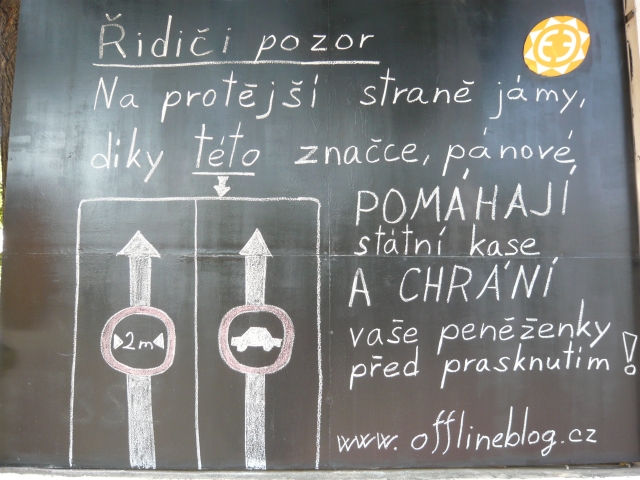 Řidiči pozor
Na protější straně jámy,
díky této značce, pánové
POMÁHAJÍ
státní kase
A CHRÁNÍ
vaše peněženky
před prasknutím!
2m
www.offlineblog.cz